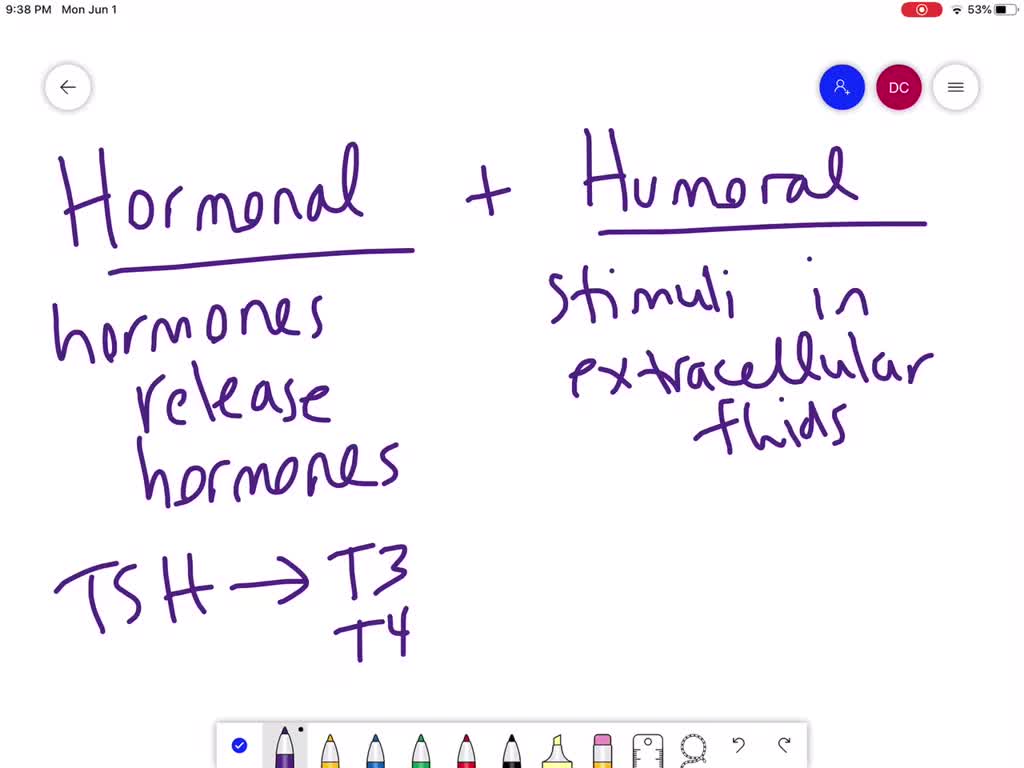 9:38 PM Mon Jun 1
53%
DC
Hormonal + Humoral
hormones
release
hormones
TSH → T3
T4
stimuli in
extracellular
fluids